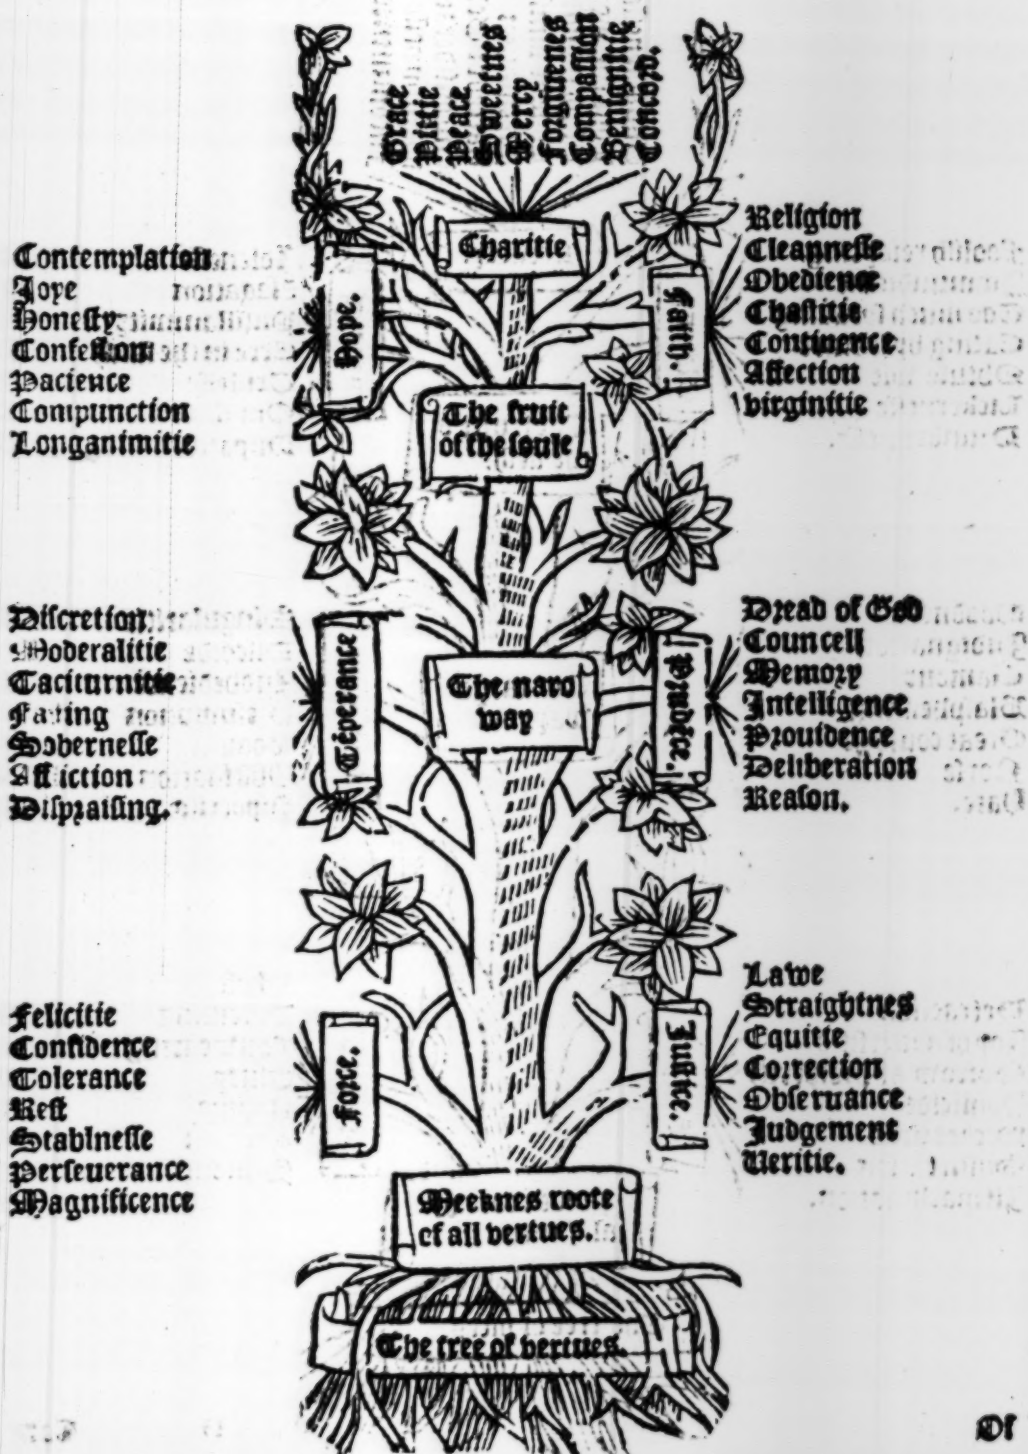 Grace
Pittie
Peace
Sweetnes
Mercy
Forgiuenes
Compassion
Benignitie
Concord.
Charitie
Contemplation
Joye
Honesty
Confession
Pacience
Compunction
Longanimitie
Hope.
Faith.
Religion
Cleannesse
Obedience
Chastitie
Continence
Affection
Virginitie
The fruit
of the soule
Discretion
Moderalitie
Taciturnitie
Fasting
Sobernesse
Affliction
Dispraising.
Tẽperance
The naro
way
Prudẽce.
Dread of God
Councell
Memory
Intelligence
Prouidence
Deliberation
Reason.
Felicitie
Confidence
Tolerance
Rest
Stablnesse
Perseuerance
Magnificence
Force.
Justice.
Lawe
Straightnes
Equitie
Correction
Obseruance
Judgement
Veritie.
Meeknes roote
of all vertues.
The tree of vertues.
Of